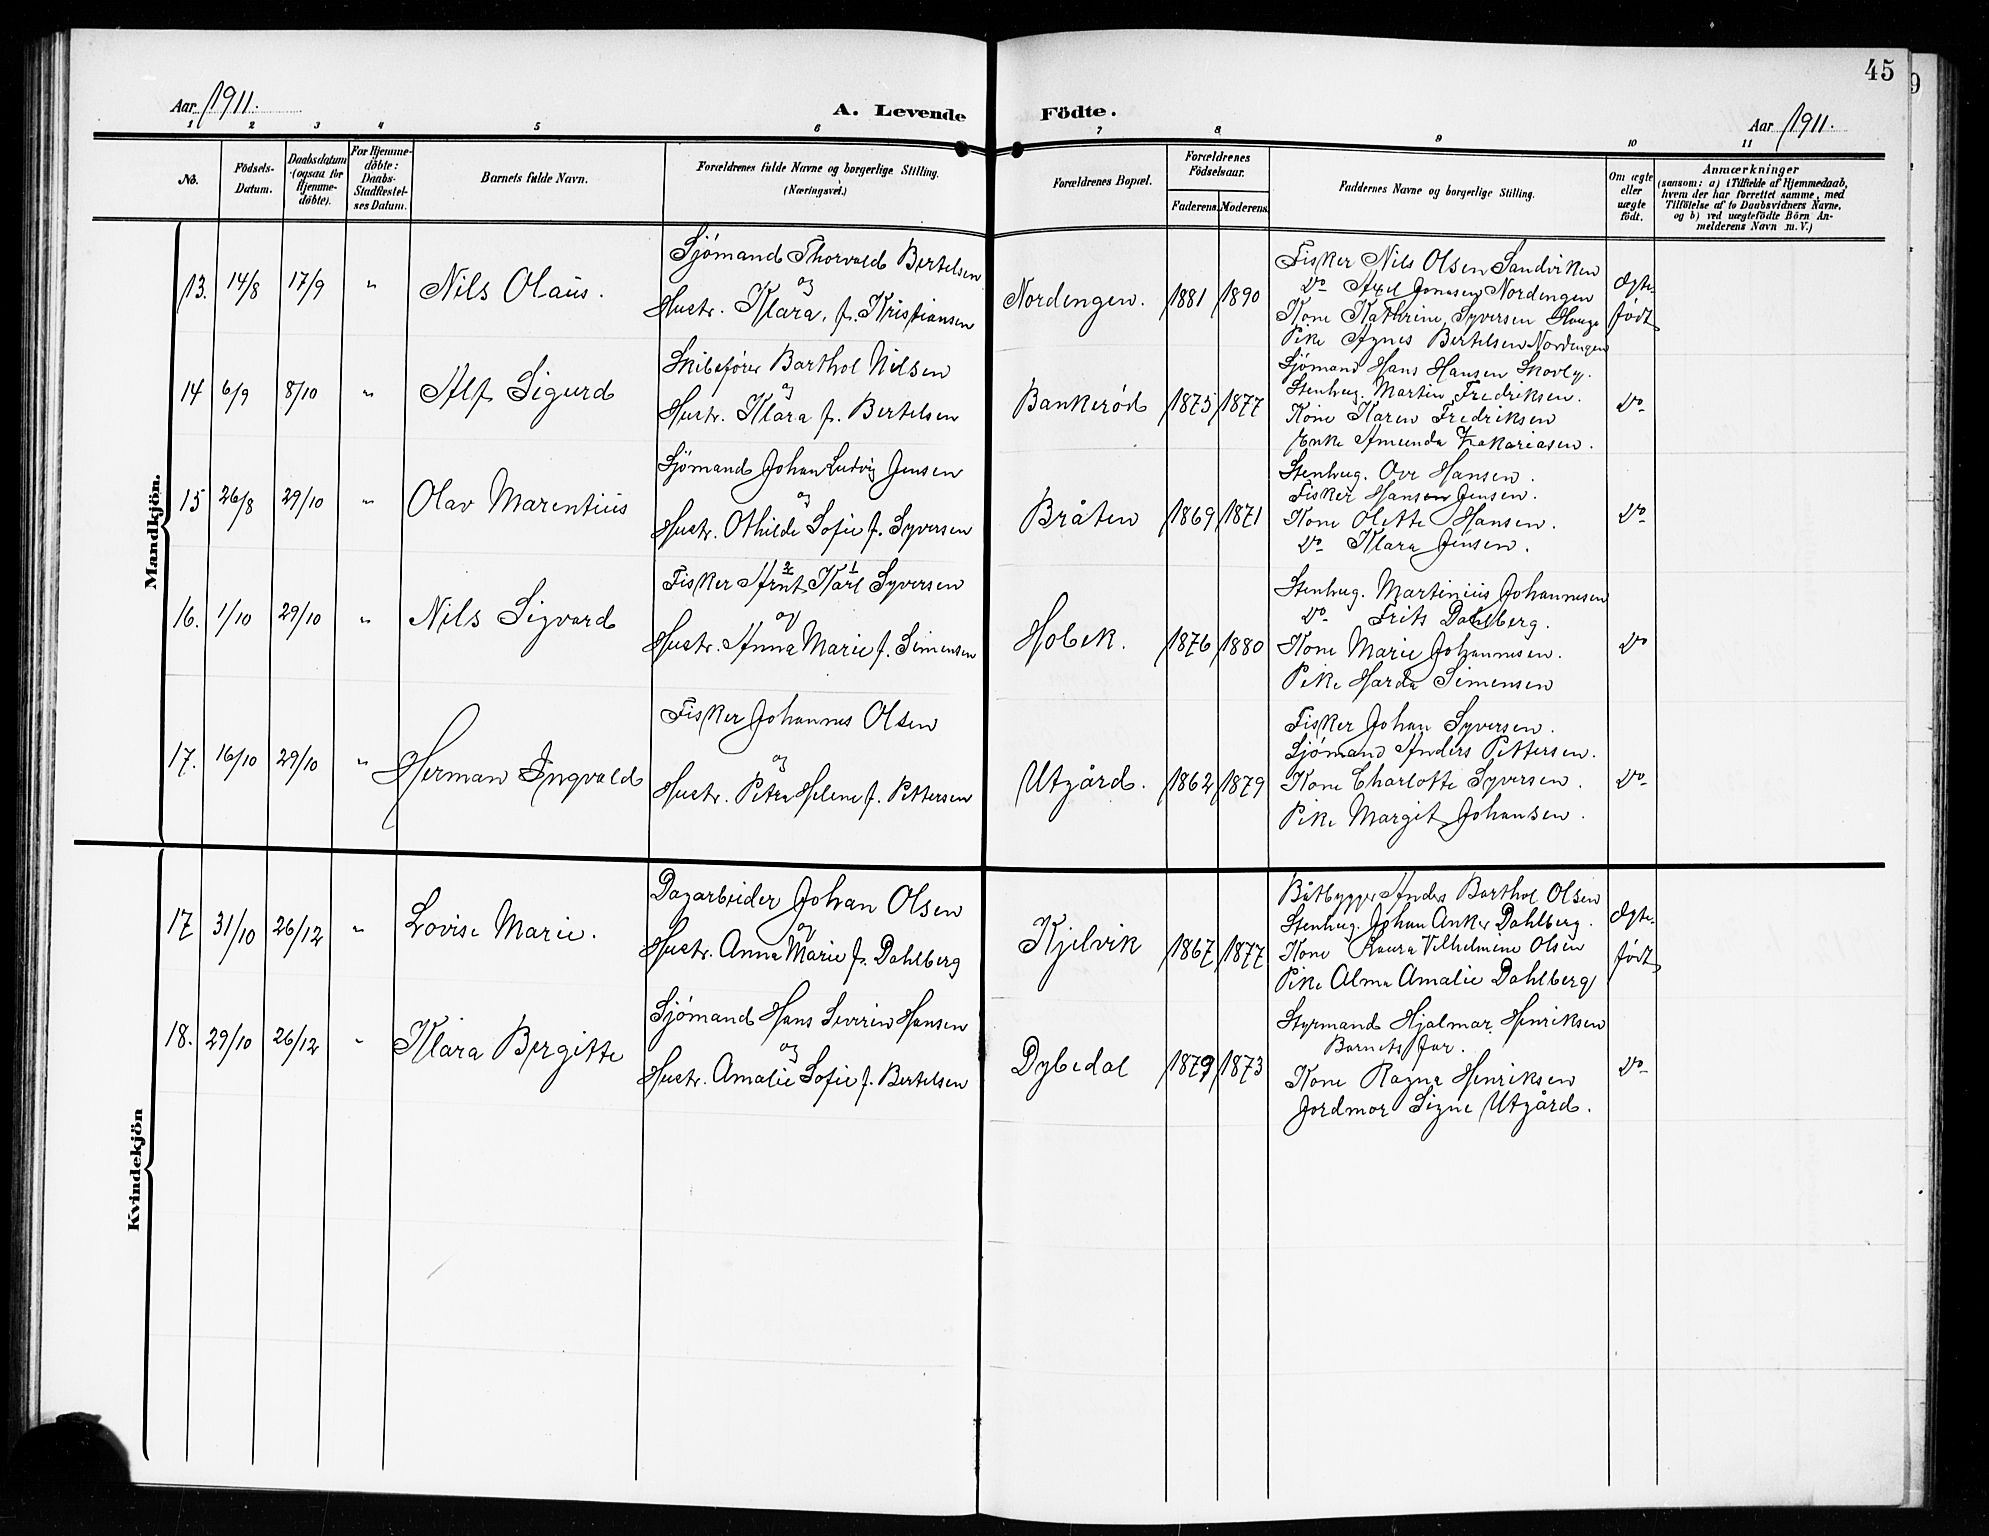 45
Aar 1911.
A. Levende Födte.
Aar 1911.
1 2 3 4 5 6 7 8 9 10 11
No.
Födsels-Datum.
Daabsdatum (ogsaa for Hjemme-döbte).
For Hjemme-döbte: Daabs-Stadfestel-ses Datum.
Barnets fulde Navn.
Forældrenes fulde Navne og borgerlige Stilling. (Næringsvei.)
Forældrenes Bopæl.
Forældrenes Födselsaar.
Faderens. Moderens.
Faddernes Navne og borgerlige Stilling.
Om ægte eller uægte födt.
Anmærkninger
(sansom: a) i Tilfælde af Hjemmedaab, hvem der har forrettet samme, med Tilföielse af to Daabsvidners Navne, og b) ved uægtefödte Börn Anmelderens Navn m. V.)
Mandkjön.
13. 14/8 17/9 " Nils Olaus.
Sjömand Thorvald Bertelsen
og
Hustr. Klara, f. Kristiansen
Nordengen. 1881 1890
Fisker Nils Olsen Sandviken
Do Axel Jonasen Nordengen
Kone Kathrine Syversen Hauge
Pike Agnes Bertelsen Nordengen
Ægte-
født
14 6/9 8/10 " Alf Sigurd
Skibsfører Barthol Nilsen
og
Hustr. Klara f. Bertelsen
Bankerød 1875 1877
Sjömand Hans Hansen Skovly.
Stenhug. Martin Fredriksen.
Kone Karen Fredriksen
Enke Amunda Zakariasen.
Do
15 26/8 29/10 " Olav Marentius
Sjömand Johan Ludvig Jensen
og
Hustr. Othilde Sofie f. Syversen
Bråten 1869 1871
Stenhug. Ove Hansen.
Fisker Hansen Jensen.
Kone Olette Hansen.
Do Klara Jensen.
Do
16. 1/10 29/10 " Nils Sigvard
2 1
Fisker Arnt Karl Syversen
og
Hustr. Anna Marie f. Simensen
Hobek. 1876 1880
Stenhug. Martinius Johannesen
Do Frits Dahlberg.
Kone Marie Johannesen.
Pike Harda Simensen
Do
17. 16/10 29/10 " Herman Ingvald
Fisker Johannes Olsen
og
Hustr. Petra Helene f. Pettersen
Utgård. 1862 1879
Fisker Johan Syversen.
Sjömand Anders Pettersen.
Kone Charlotte Syversen.
Pike Margit Johansen.
Do
Kvindekjön
17 31/10 26/12 " Lovise Marie.
Dagarbeider Johan Olsen
og
Hustr. Anna Marie f. Dahlberg
Kjelvik 1867 1877
Båtbygger Anders Barthol Olsen
Stenhug. Johan Anker Dahlberg.
Kone Laura Vilhelmine Olsen
Pike Alma Amalie Dahlberg
Ægte-
født
18. 29/10 26/12 " Klara Bergitte
Sjömand Hans Severin Hansen
og
Hustr. Amalie Sofie f. Bertelsen
Dybedal 1879 1873
Styrmand Hjalmar Henriksen
Barnets far.
Kone Ragna Henriksen
Jordmor Signe Utgård.
Do